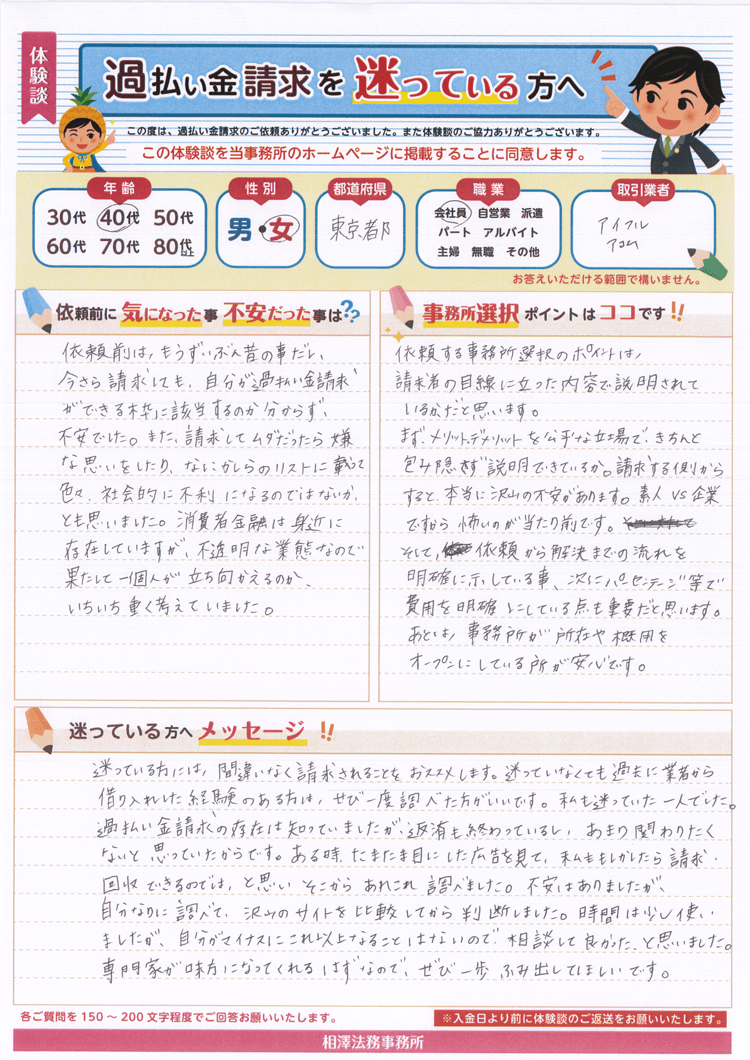 体験談
過払い金請求を 迷っている 方へ
この度は、過払い金請求のご依頼ありがとうございました。また体験談のご協力ありがとうございます。
この体験談を当事務所のホームページに掲載することに同意します。
年齢
30代 40代 50代
60代 70代 80代以上
性別
男・女
都道府県
東京都
職業
会社員 自営業 派遣
パート アルバイト
主婦 無職 その他
取引業者
アイフル
アコム
お答えいただける範囲で構いません。
依頼前に 気になった事 不安だった事は??
依頼前は、もうずいぶん昔の事だし、
今さら請求しても、自分が過払い金請求
ができる枠に該当するのか分からず、
不安でした。また、請求してムダだったら嫌
な思いをしたり、なにかしらのリストに載って
色々、社会的に不利になるのではないか、
とも思いました。消費者金融は身近に
存在していますが、不透明な業態なので
果たして一個人が立ち向かえるのか、
いちいち重く考えていました。
事務所選択 ポイントは ココです!!
依頼する事務所選択のポイントは、
請求者の目線に立った内容で説明されて
いるかだと思います。
まず、メリット、デメリットを公平な立場で、きちんと
包み隠さず説明できているか。請求する側から
すると、本当に沢山の不安があります。素人VS企業
ですから怖いのが当たり前です。
そして、依頼から解決までの流れを
明確に示している事、次にパーセンテージ等で
費用を明確にしている点も重要だと思います。
あとは、事務所が所在や概用を
オープンにしている所が安心です。
迷っている方へ メッセージ !!
迷っている方には、間違いなく請求されることをおススメします。迷っていなくても過去に業者から
借り入れした経験のある方は、ぜひ一度調べた方がいいです。私も迷っていた一人でした。
過払い金請求の存在は知っていましたが、返済も終わっているし、あまり関わりたく
ないと思っていたからです。ある時、たまたま目にした広告を見て、私ももしかしたら請求・
回収できるのでは、と思い そこから あれこれ 調べました。不安はありましたが、
自分なりに調べて、沢山のサイトを比較してから判断しました。時間は少し使い
ましたが、自分がマイナスにこれ以上なることはないので 相談して良かった、と思いました。
専門家が味方になってくれるはずなので、ぜひ一歩 ふみ出してほしいです。
各ご質問を150〜200文字程度でご回答お願いいたします。
※入金日より前に体験談のご返送をお願いいたします。
相澤法務事務所